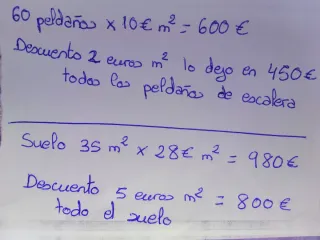 60 peldaños x 10€ m² = 600€
Descuento 2 euros m² lo dejo en 450€
todos los peldaños de escalera
Suelo 35 m² x 28€ m² = 980€
Descuento 5 euros m² = 800€
todo el suelo